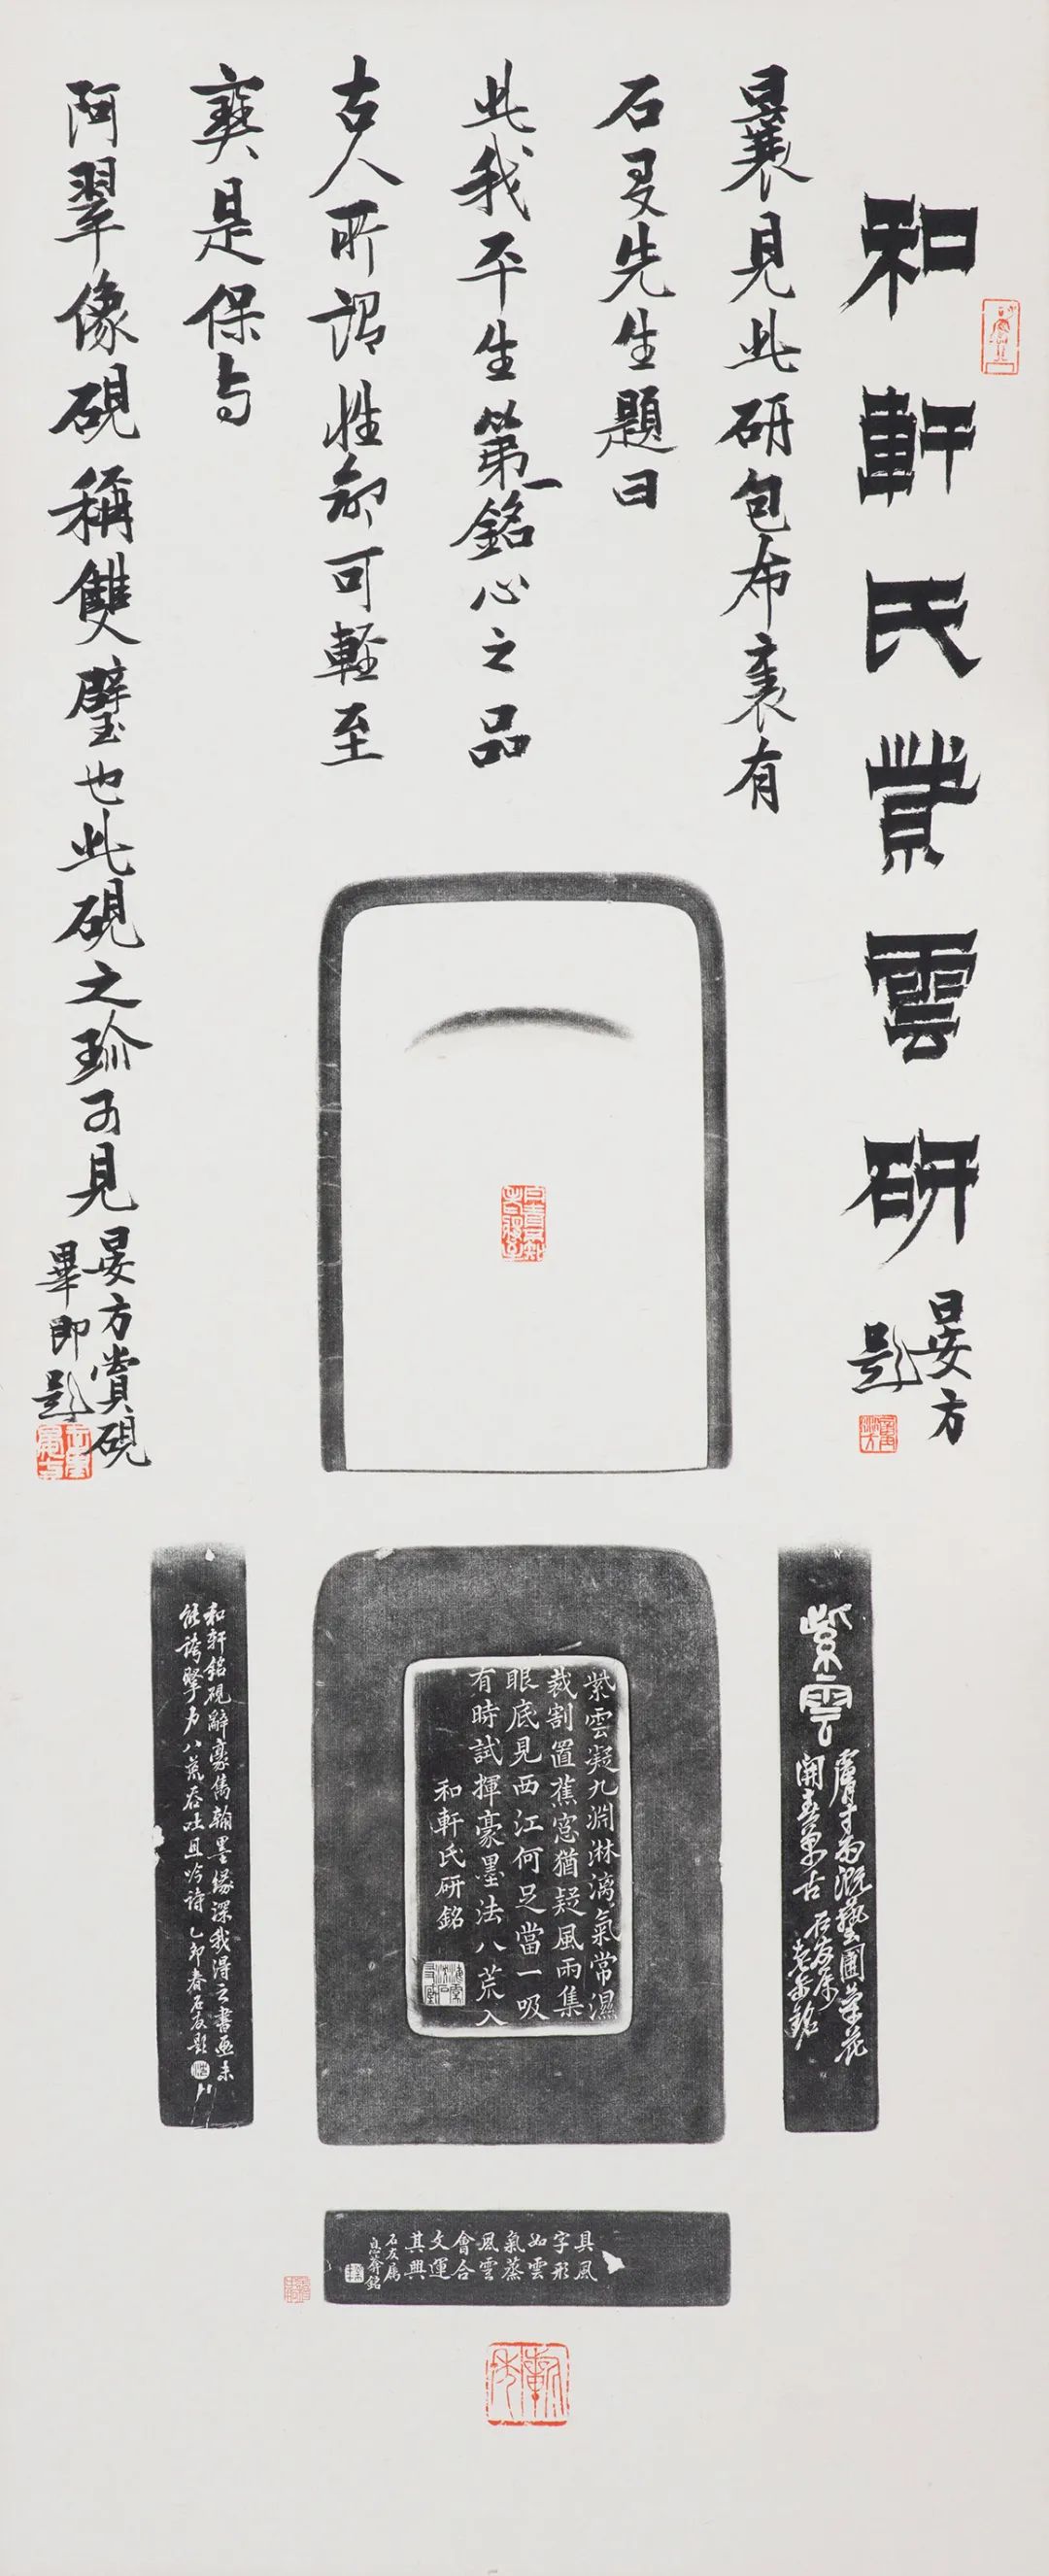 和軒氏紫雲研
晏方
題
曩見此研包布裹有
石友先生題曰
此我平生第一銘心之品
古人所謂性命可輕至
寶是保与
阿翠像硯稱雙璧也此硯之珍可見
晏方賞硯
畢即題
紫雲
膚寸而興藝圃榮花
開春萬古
石友屬
老缶銘
紫雲凝九淵淋漓氣常濕
裁割置蕉窓猶疑風雨集
眼底見西江何足當一吸
有時試揮豪墨法八荒入
和軒氏研銘
和軒銘硯辭豪雋翰墨緣深我得之書画未
能誇擊力八荒吞吐且吟詩 乙卯春石友題
具風
字形
如雲
氣蒸
風雲
會合
文運
其興
石友屬